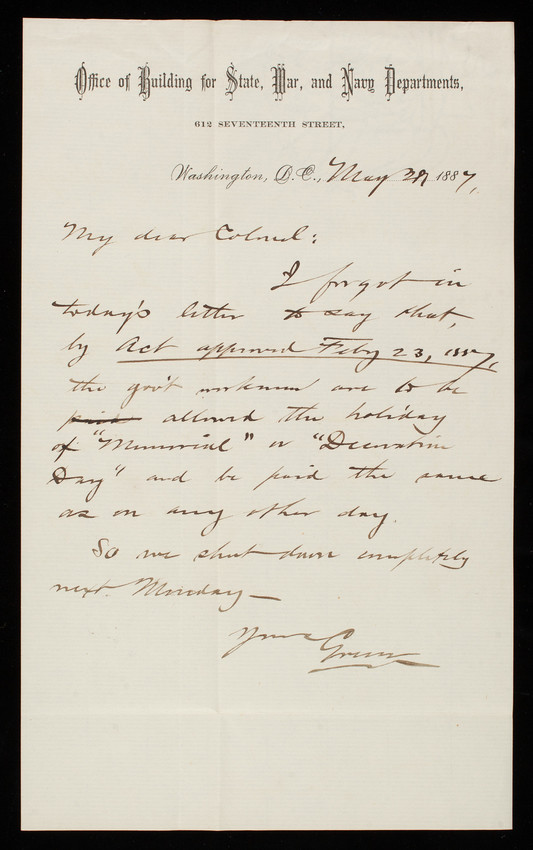 Office of Building for State, War, and Navy Departments,
612 SEVENTEENTH STREET,
Washington, D.C., May 1887,
My dear Colonel:
I forgot in
today's letter to say that,
by Act approved Feby 23, 1887,
the gov't workmen are to be
paid allowed the holiday
of "Memorial" or "Decoration
Day" and be paid the same
as on any other day.
So we shut down completely
next Monday—
Yours
Green